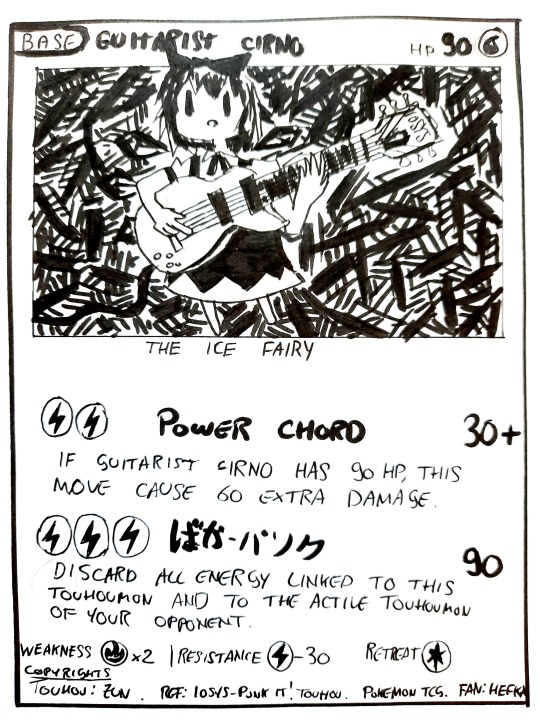 BASE GUITARIST CIRNO HP 90
IOSYS
THE ICE FAIRY
POWER CHORD 30+
IF GUITARIST CIRNO HAS 90 HP, THIS
MOVE CAUSE 60 EXTRA DAMAGE.
ばか-パンク 90
DISCARD ALL ENERGY LINKED TO THIS
TOUHOUMON AND TO THE ACTIVE TOUHOUMON
OF YOUR OPPONENT.
WEAKNESS x2 | RESISTANCE -30 RETREAT
COPYRIGHTS
TOUHOU: ZUN. REF: IOSYS-PUNK IT! TOUHOU. POKEMON TCG. FAN: